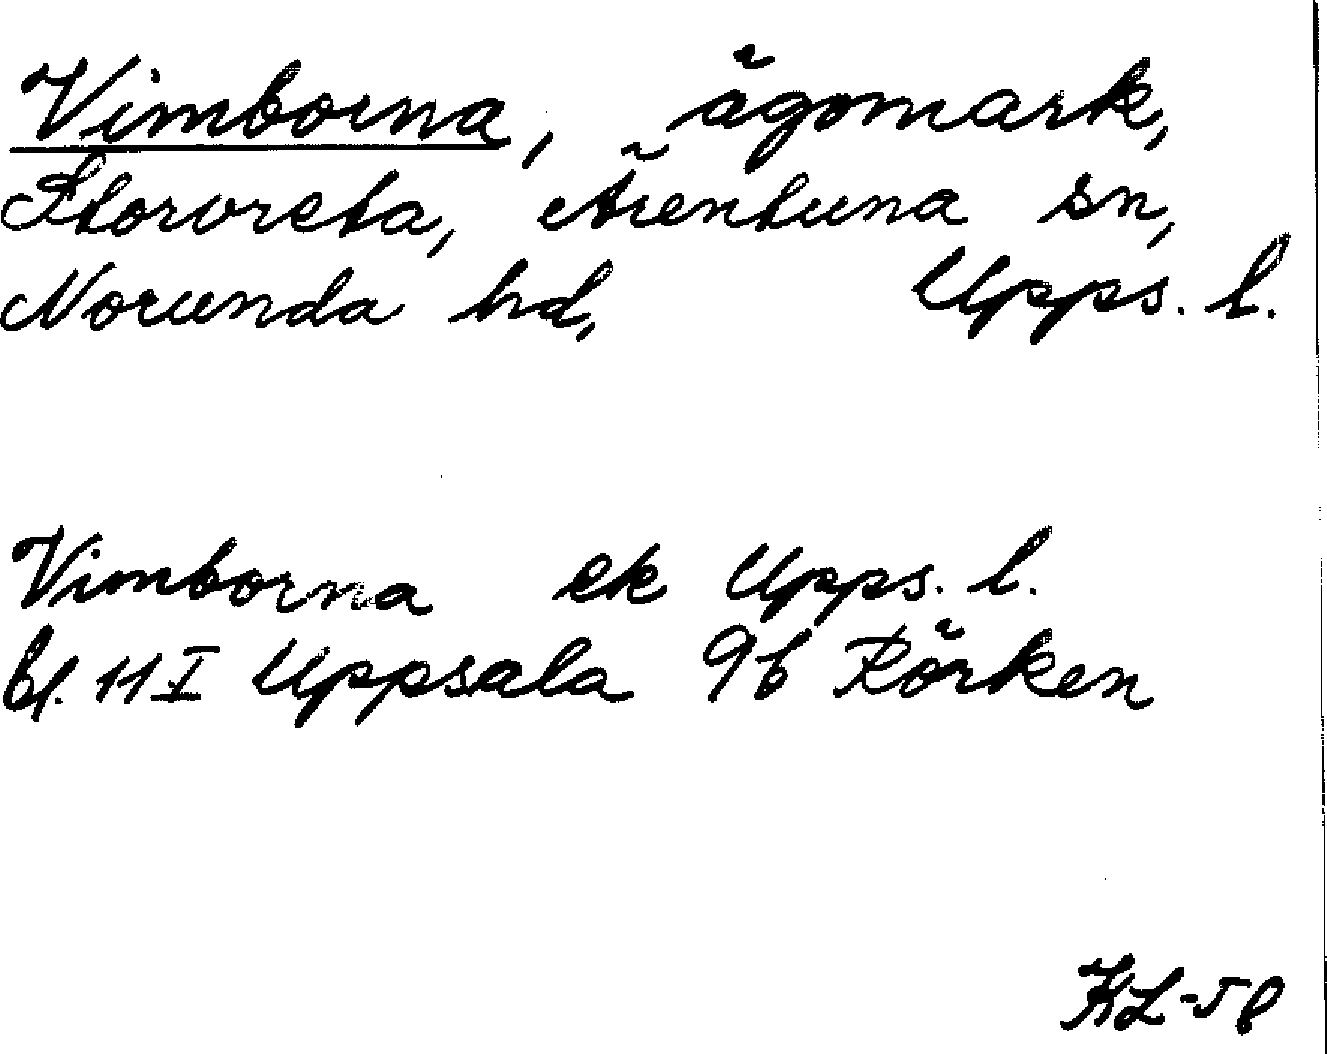 Vimborna, ägomark,
Storvreta, Ärentuna sn,
Norunda hd, Upps. l.
Vimborna ek Upps. l.
bl. 11 I Uppsala 9b Rörken
KL-58